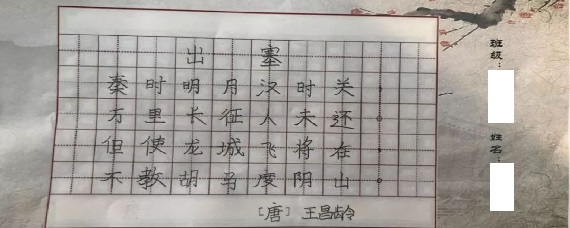 出塞
秦时明月汉时关，
万里长征人未还。
但使龙城飞将在，
不教胡马度阴山。
［唐］王昌龄
班级：
姓名：